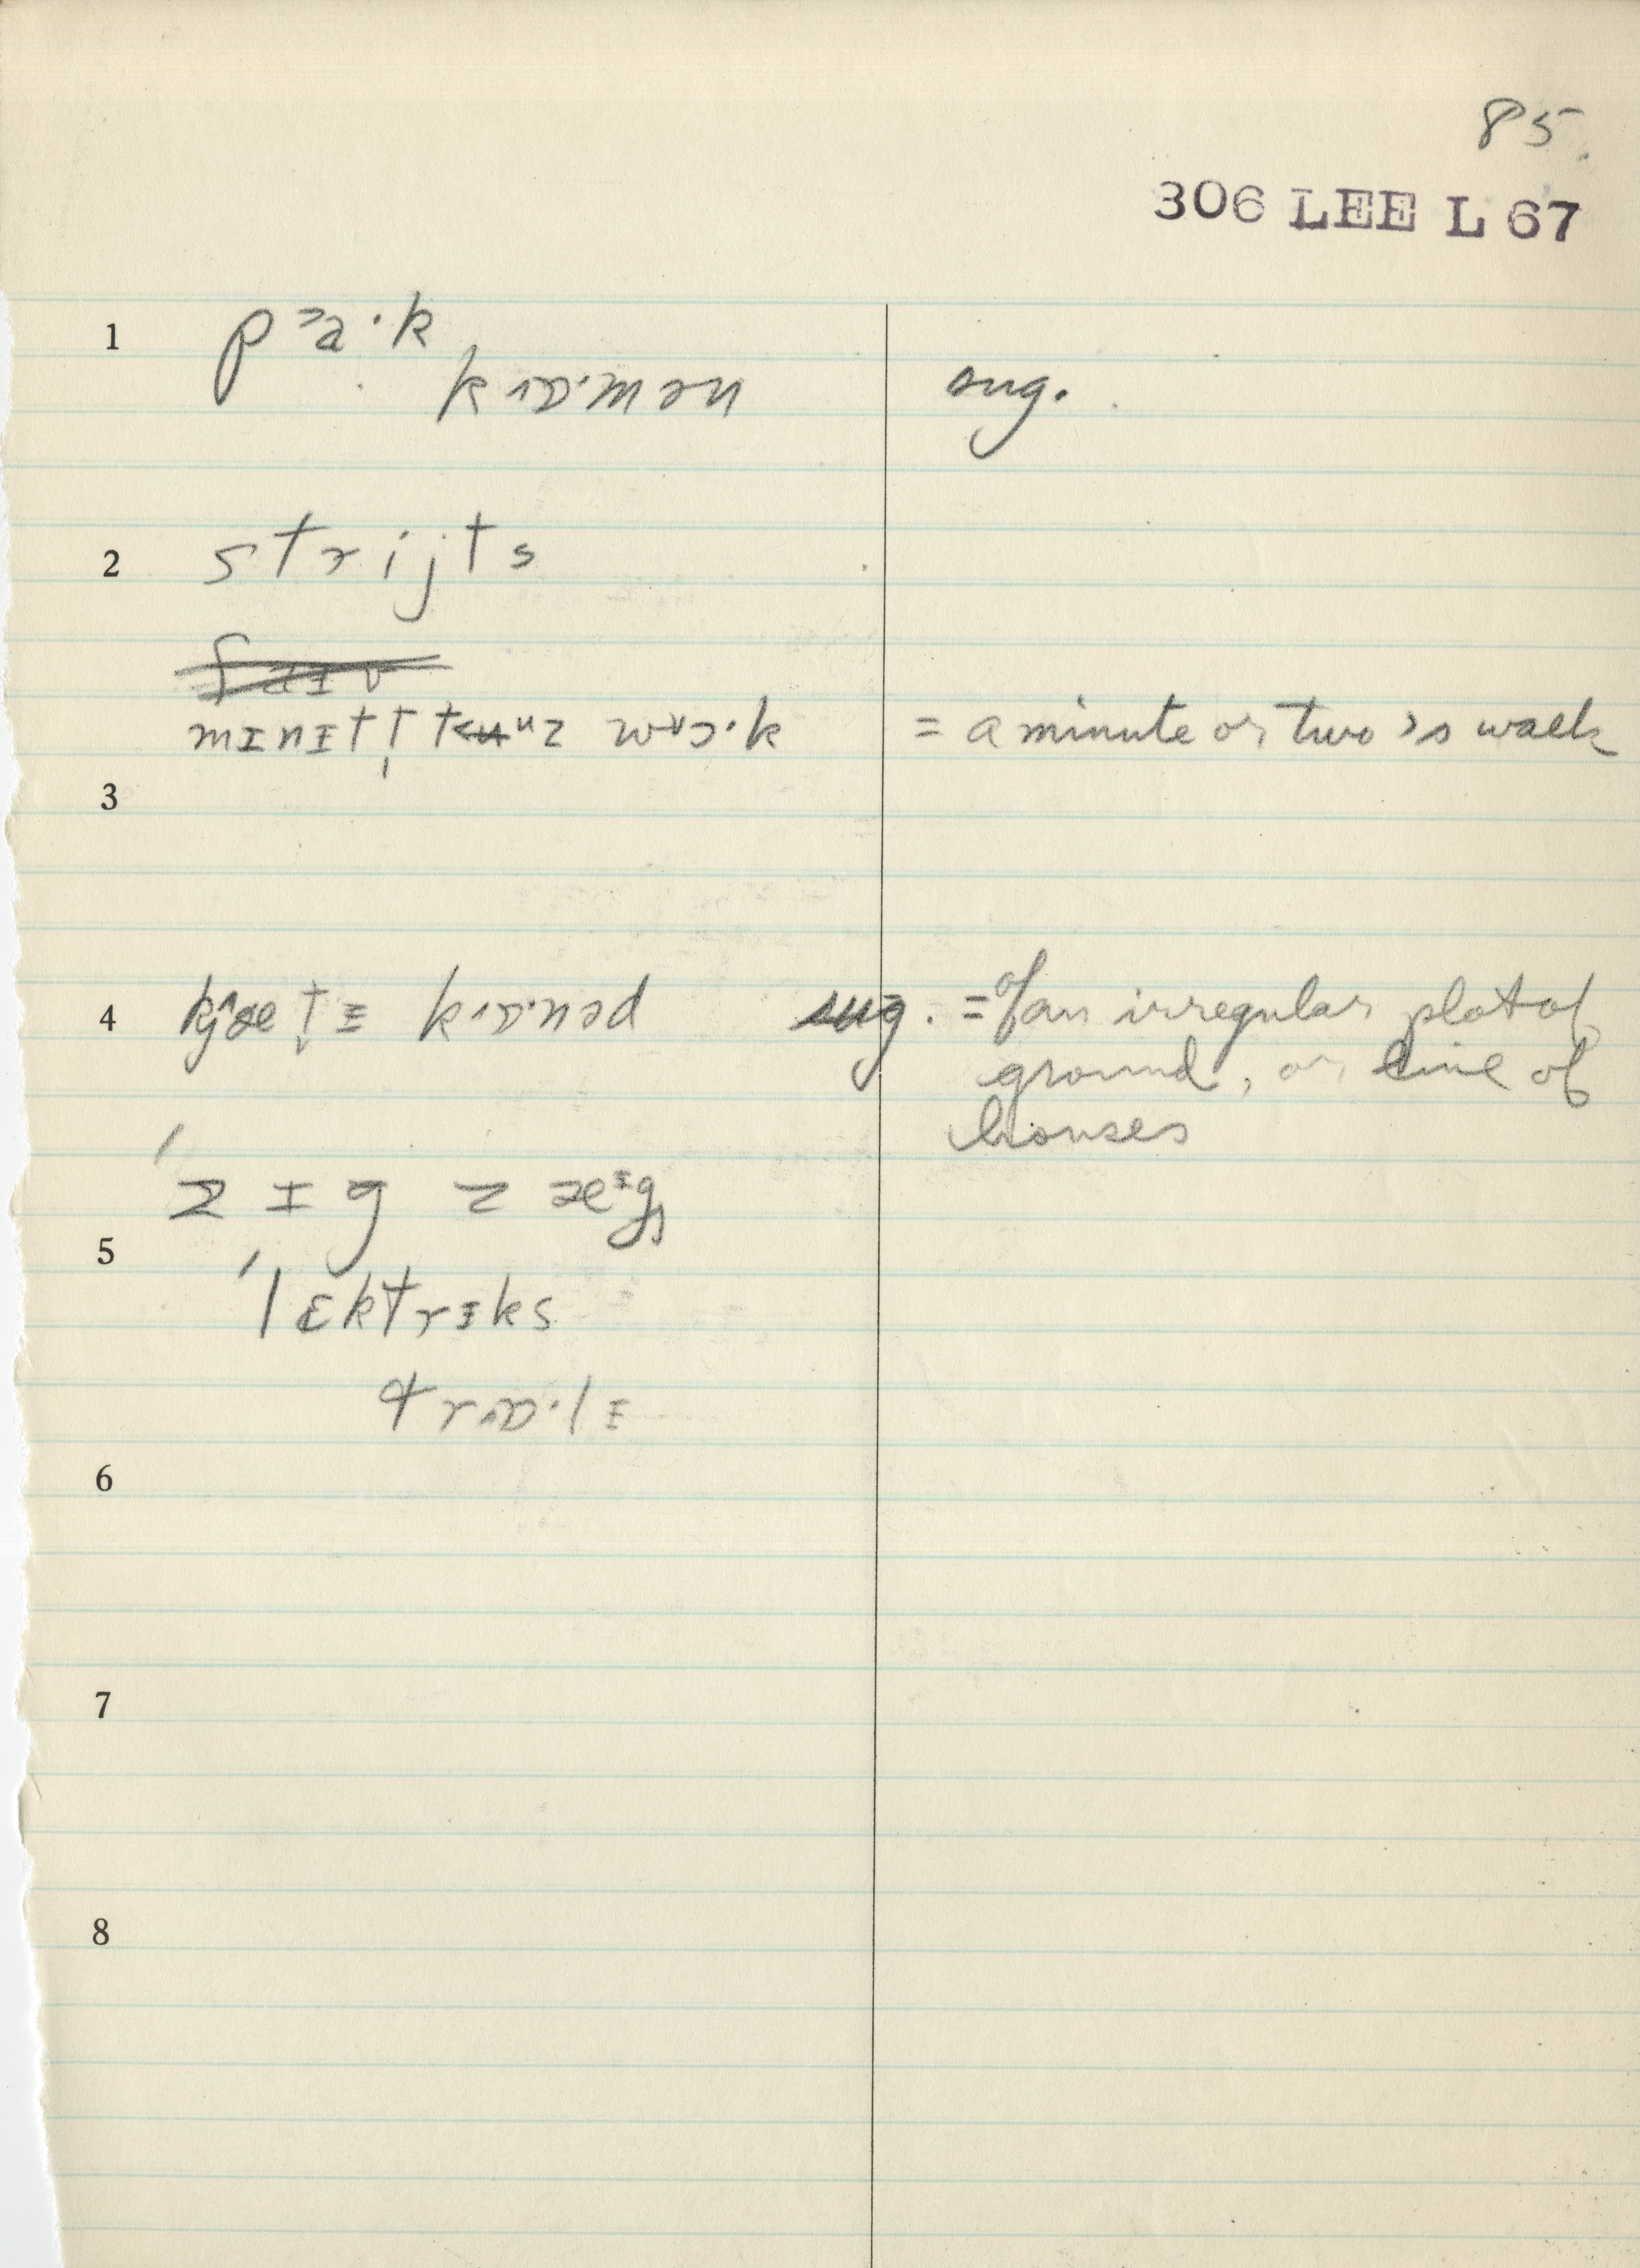 85.
306 LEE L 67
1 p a · k
k ɒ · m ə n sug.
2 s t r i j t s
m ɪ n ɪ t w ɔ · k = a minute or two's walk
3
4 k ɒ · n ə d sug. = of an irregular plot of
ground, or line of
houses
ˈz ɪ g z æᶦg
5
ˈl ɛ k t r ɪ k s
t r ɒ · l ɪ
6
7
8